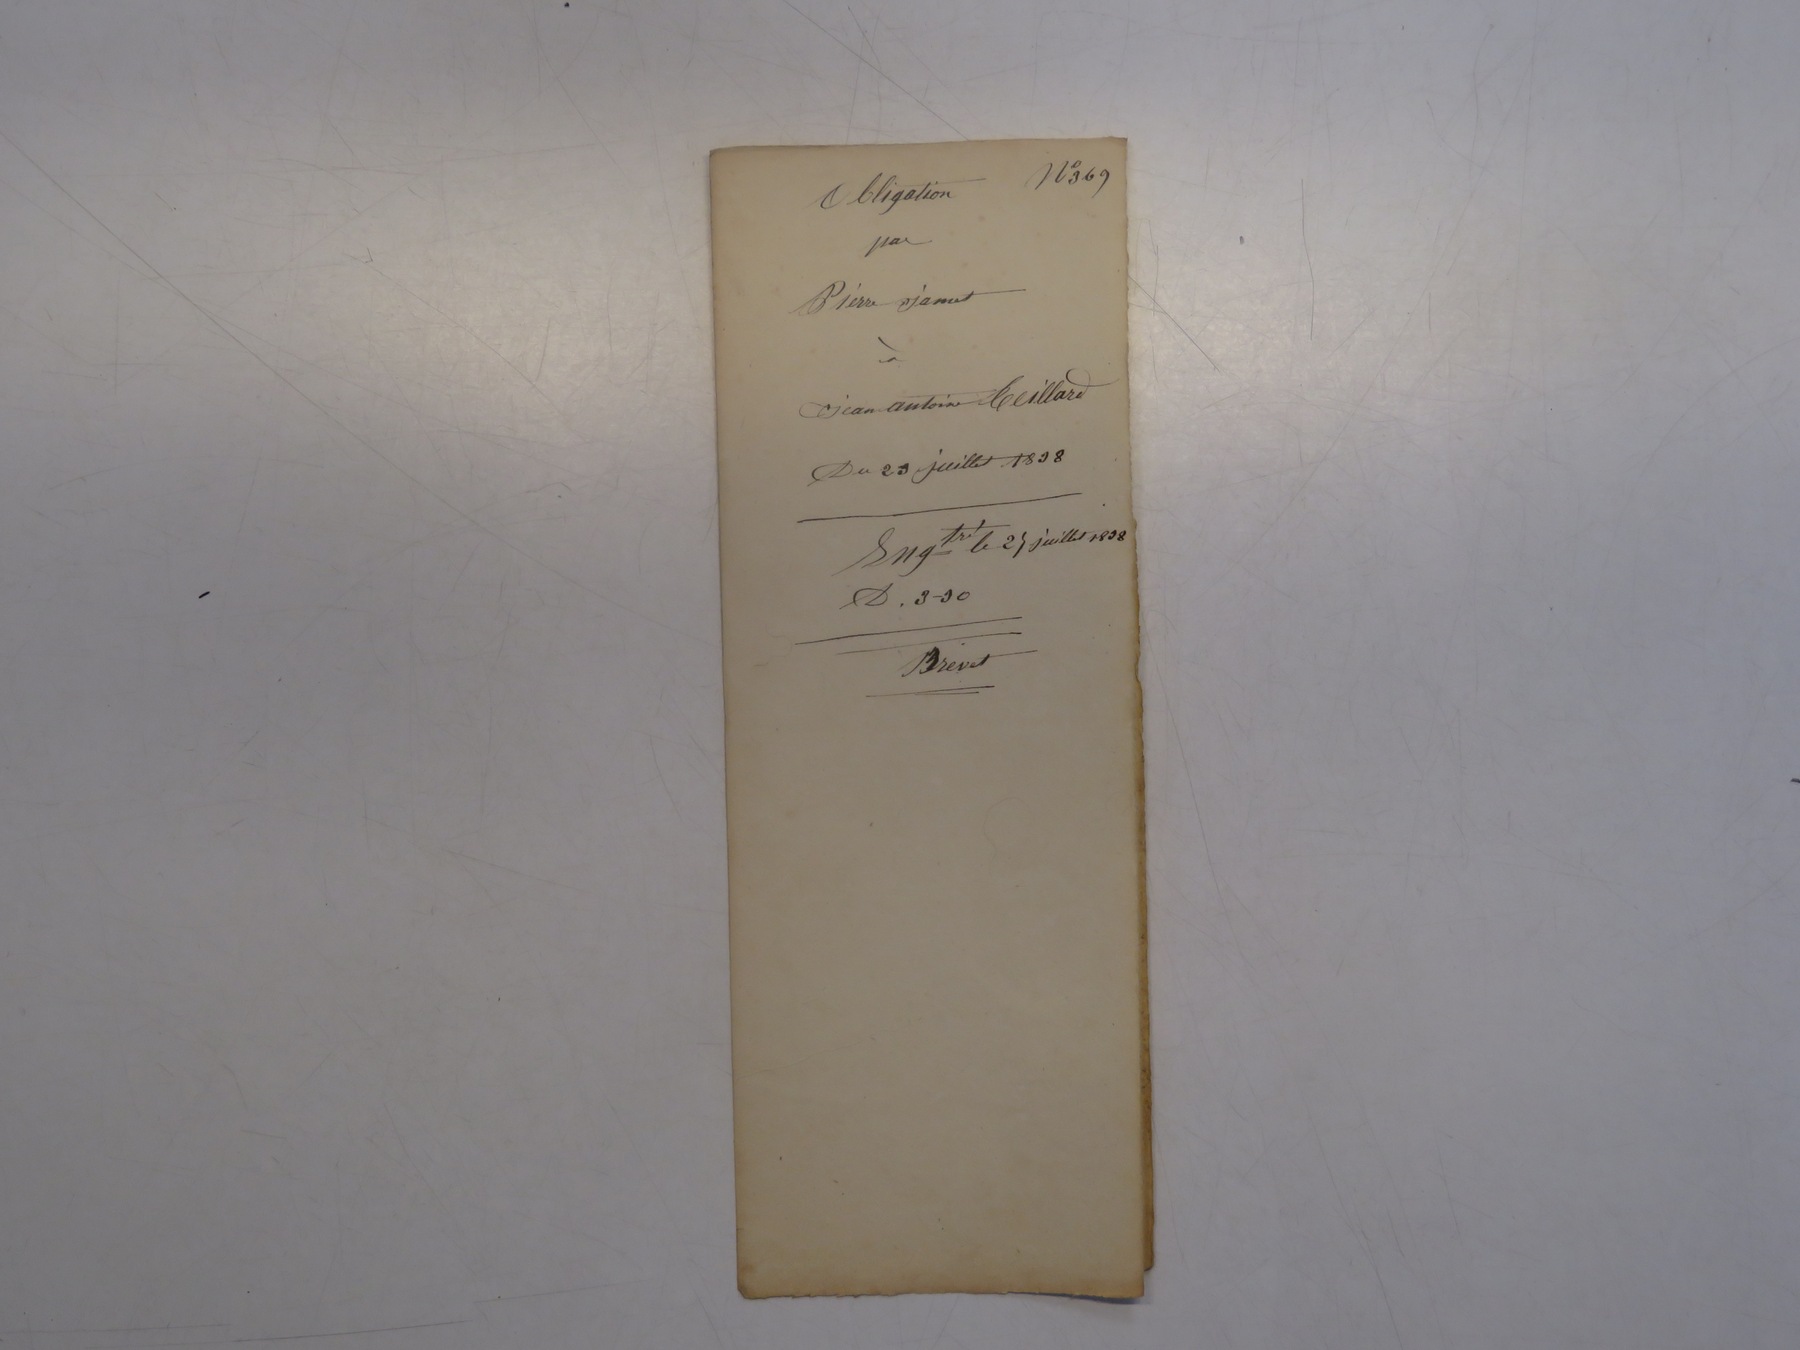 Nº 369
Obligation
par
Pierre Jamet
à
Jean antoine Teillard
Du 23 juillet 1838
Engtré le 25 juillet 1838
D. 3-30
Brevet